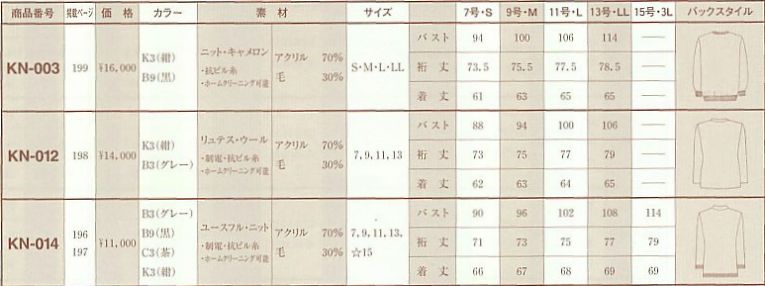 商品番号 掲載ページ 価格 カラー 素材 サイズ 7号・S 9号・M 11号・L 13号・LL 15号・3L バックスタイル
KN-003 199 ¥16,000 K3(紺) B9(黒) ニット・キャメロン ・抗ピル糸 ・ホームクリーニング可能 アクリル 70% 毛 30% S・M・L・LL
バスト 94 100 106 114 —
裄丈 73.5 75.5 77.5 78.5 —
着丈 61 63 65 65 —
KN-012 198 ¥14,000 K3(紺) B3(グレー) リュテス・ウール ・制電・抗ピル糸 ・ホームクリーニング可能 アクリル 70% 毛 30% 7,9,11,13
バスト 88 94 100 106 —
裄丈 73 75 77 79 —
着丈 62 63 64 65 —
KN-014 196 197 ¥11,000 B3(グレー) B9(黒) C3(茶) K3(紺) ユースフル・ニット ・制電・抗ピル糸 ・ホームクリーニング可能 アクリル 70% 毛 30% 7,9,11,13, ☆15
バスト 90 96 102 108 114
裄丈 71 73 75 77 79
着丈 66 67 68 69 69